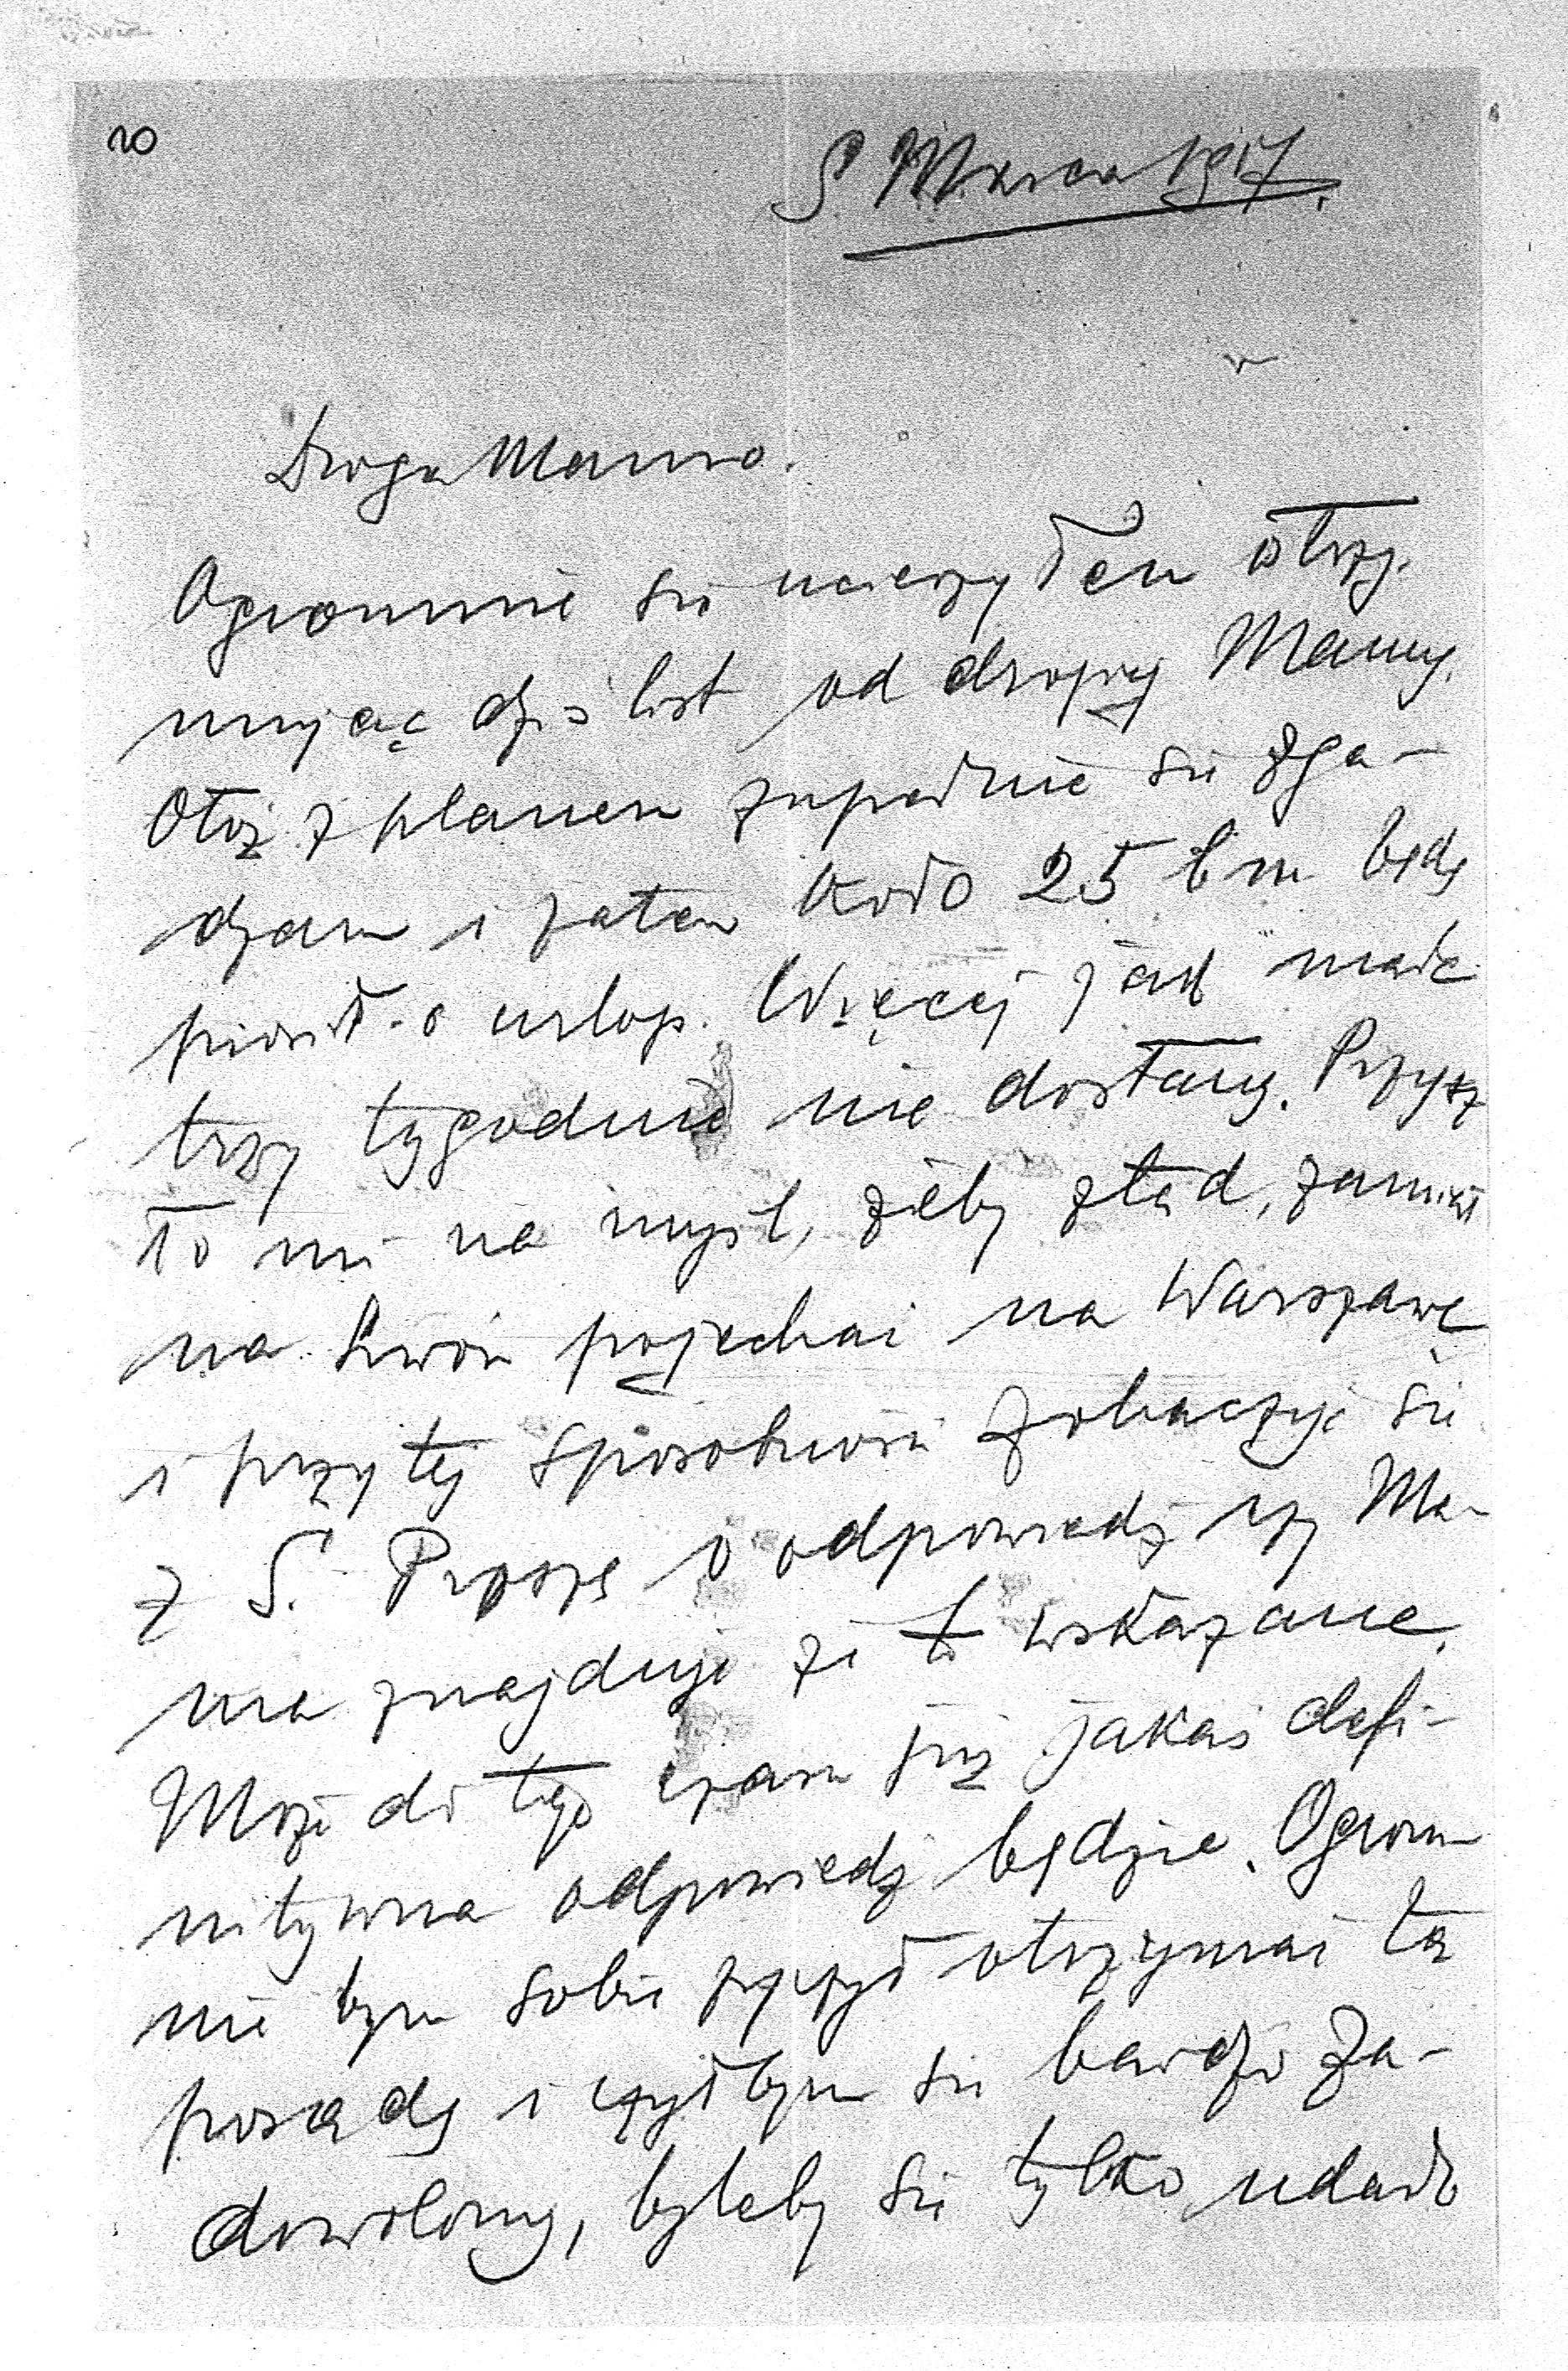 20
Marca 1917.
Droga Mamo.
Ogromnie się ucieszyłem otrzy-
mując dziś list od drogiej Mamy.
Otóż z planem zupełnie się zga-
dzam i zatem koło 25 bm będę
prosił o urlop. Więcej jak może
trzy tygodnie nie dostanę. Przysz
ło mi na myśl, żeby ztąd, zamiast
na Lwów pojechać na Warszawę
i przy tej sposobności zobaczyć się
z S. Proszę o odpowiedź czy Ma-
ma znajduje że to wskazane.
Może do tego czasu już jakaś defi-
nitywna odpowiedź będzie. Ogrom
nie bym sobie życzył otrzymać tą
posadę i czułbym się bardzo za-
dowolony, byleby się tylko udało